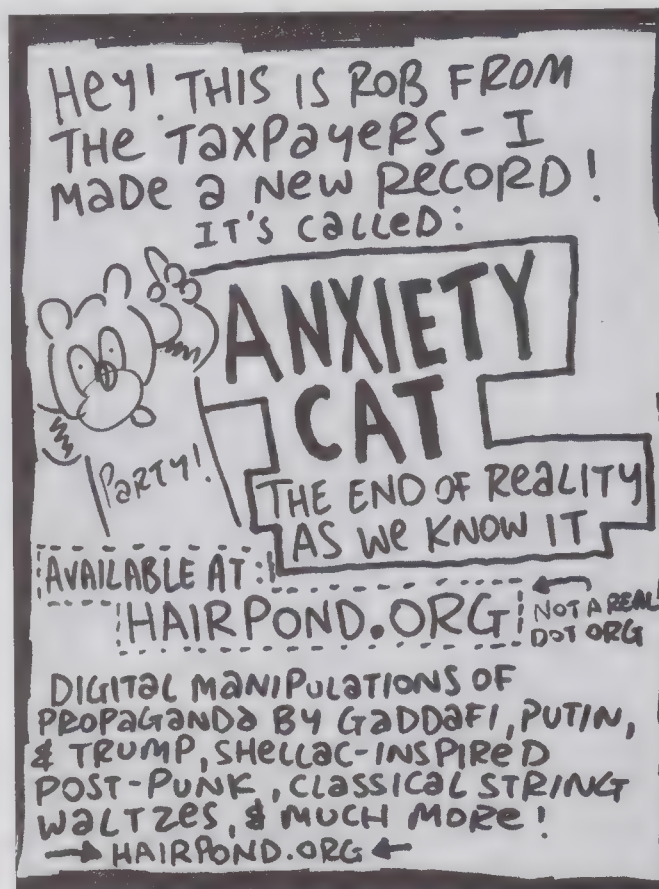 Hey! THIS IS ROB FROM
THE TaxPayeRS - I
MaDe a New RecoRD!
IT'S CalleD:
ANXIETY
CAT
THE END OF ReaLITY
AS We KNOW IT
PaRTY!
AVAILABLE AT:
HAIRPOND.ORG
NOT A REAL
DOT ORG
DIGITaL MaNIPuLaTIONS OF
PROPaGaNDa BY GaDDaFI, PUTIN,
& TRUMP, SHeLLaC-INSPIReD
POST-PUNK, CLaSSICaL STRING
WaLTZeS, & MUCH MORe!
→ HAIRPOND.ORG ←